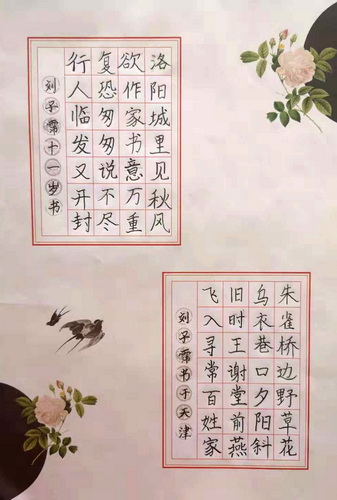 洛阳城里见秋风
欲作家书意万重
复恐匆匆说不尽
行人临发又开封
刘子十一岁书
朱雀桥边野草花
乌衣巷口夕阳斜
旧时王谢堂前燕
飞入寻常百姓家
刘子书于天津